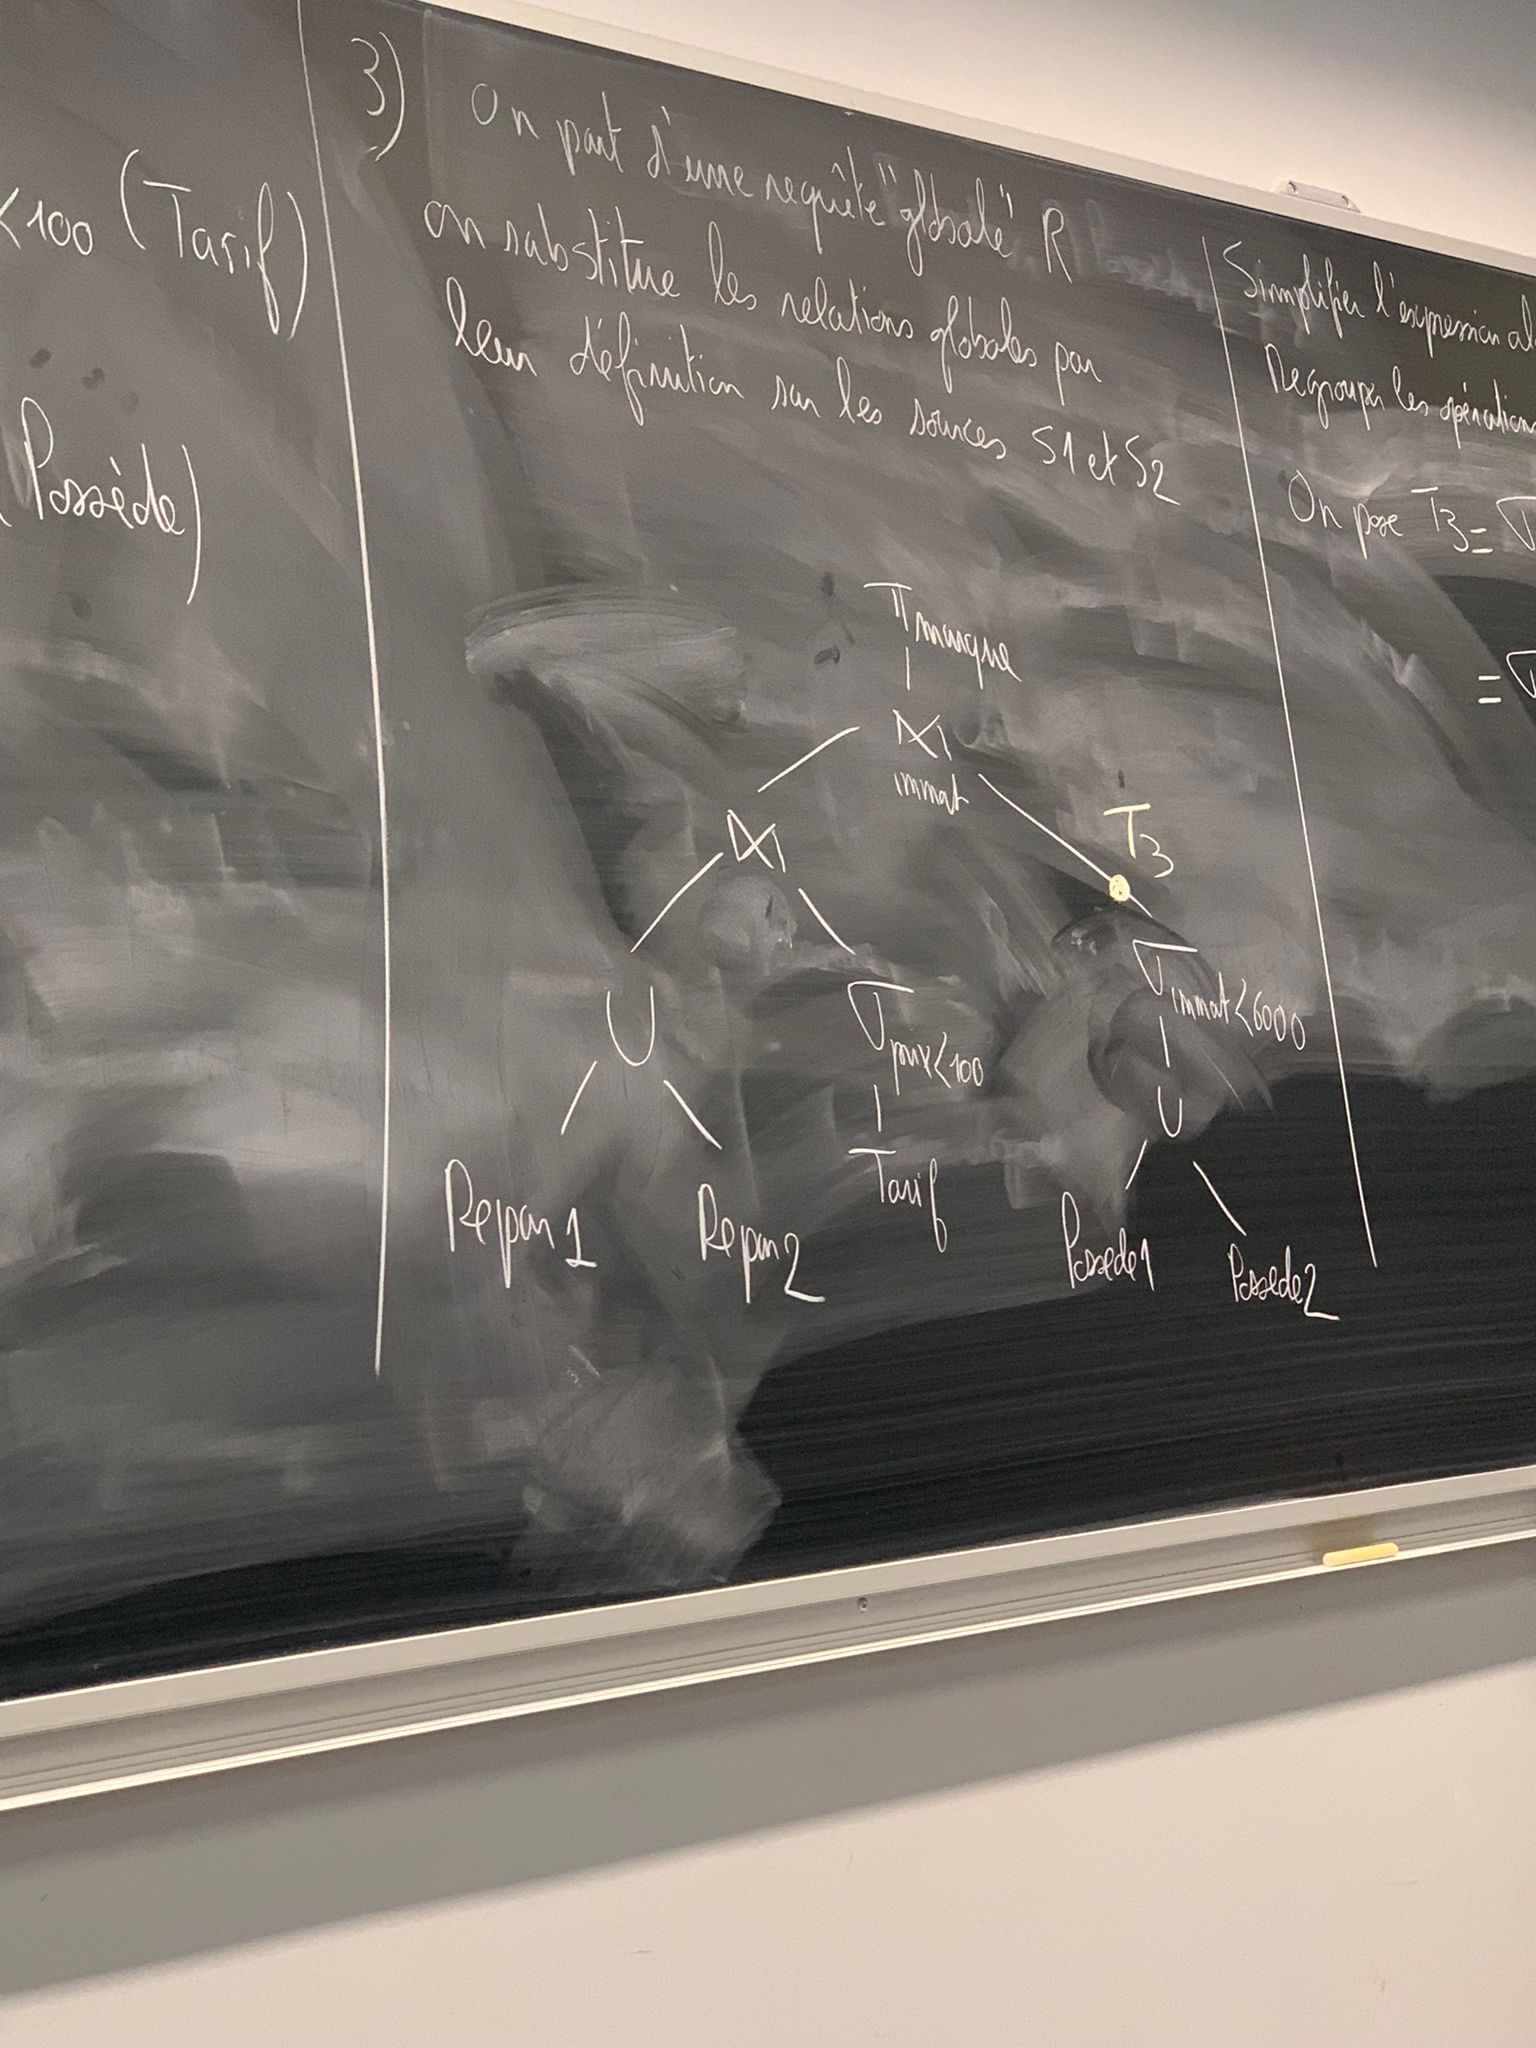 <100 (Tarif)
(Possède)
3) On part d'une requête "globale" R
on substitue les relations globales par
leur définition sur les sources S1 et S2
π marque
⋈
immat
T3
⋈
∪
σ prix<100
σ immat<6000
∪
Tarif
Repar1
Repar2
Possede1
Possede2
Simplifier l'expression al
Regrouper les opérations
On pose T3 = σ
= σ